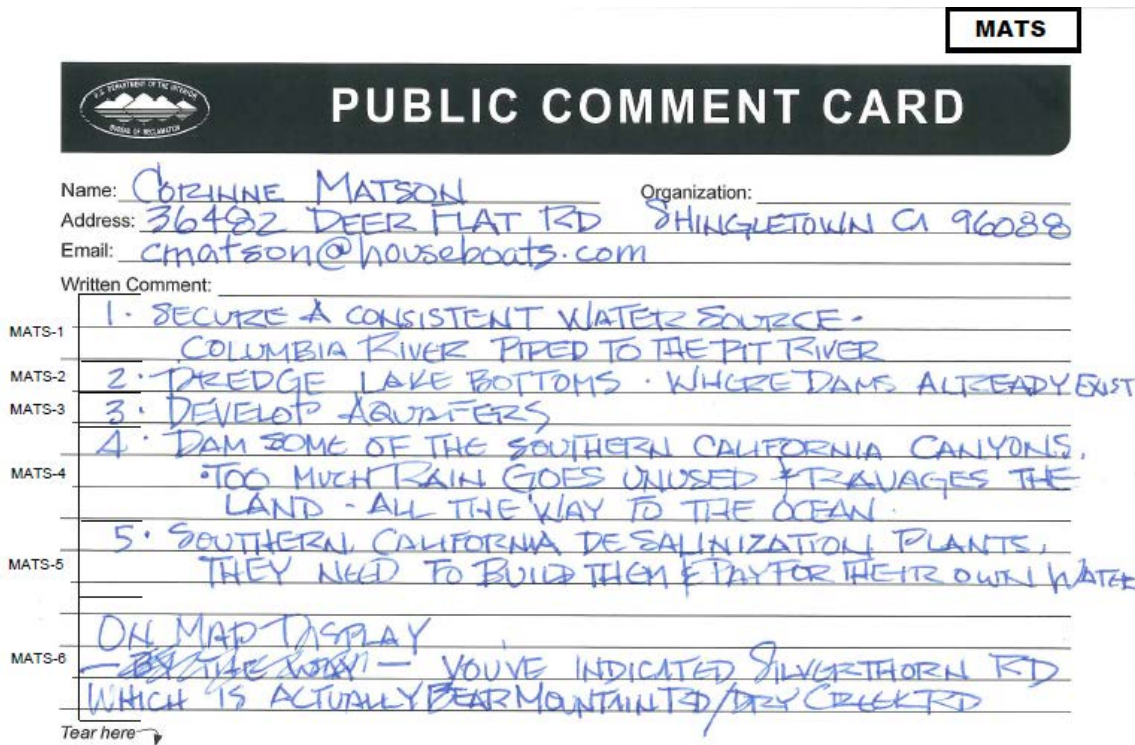 MATS
U.S. DEPARTMENT OF THE INTERIOR
BUREAU OF RECLAMATION
PUBLIC COMMENT CARD
Name: CORINNE MATSON Organization:
Address: 36482 DEER FLAT RD SHINGLETOWN CA 96088
Email: cmatson@houseboats.com
Written Comment:
MATS-1 1. SECURE A CONSISTENT WATER SOURCE.
COLUMBIA RIVER PIPED TO THE PIT RIVER
MATS-2 2. DREDGE LAKE BOTTOMS. WHERE DAMS ALREADY EXIST
MATS-3 3. DEVELOP AQUAFERS
4. DAM SOME OF THE SOUTHERN CALIFORNIA CANYONS.
MATS-4 • TOO MUCH RAIN GOES UNUSED & RAVAGES THE
LAND - ALL THE WAY TO THE OCEAN.
5. SOUTHERN CALIFORNIA DESALINIZATION PLANTS.
MATS-5 THEY NEED TO BUILD THEM & PAY FOR THEIR OWN WATER
ON MAP DISPLAY
MATS-6 - BY THE WAY - YOU'VE INDICATED SILVERTHORN RD
WHICH IS ACTUALLY BEAR MOUNTAIN RD/DRY CREEK RD
Tear here